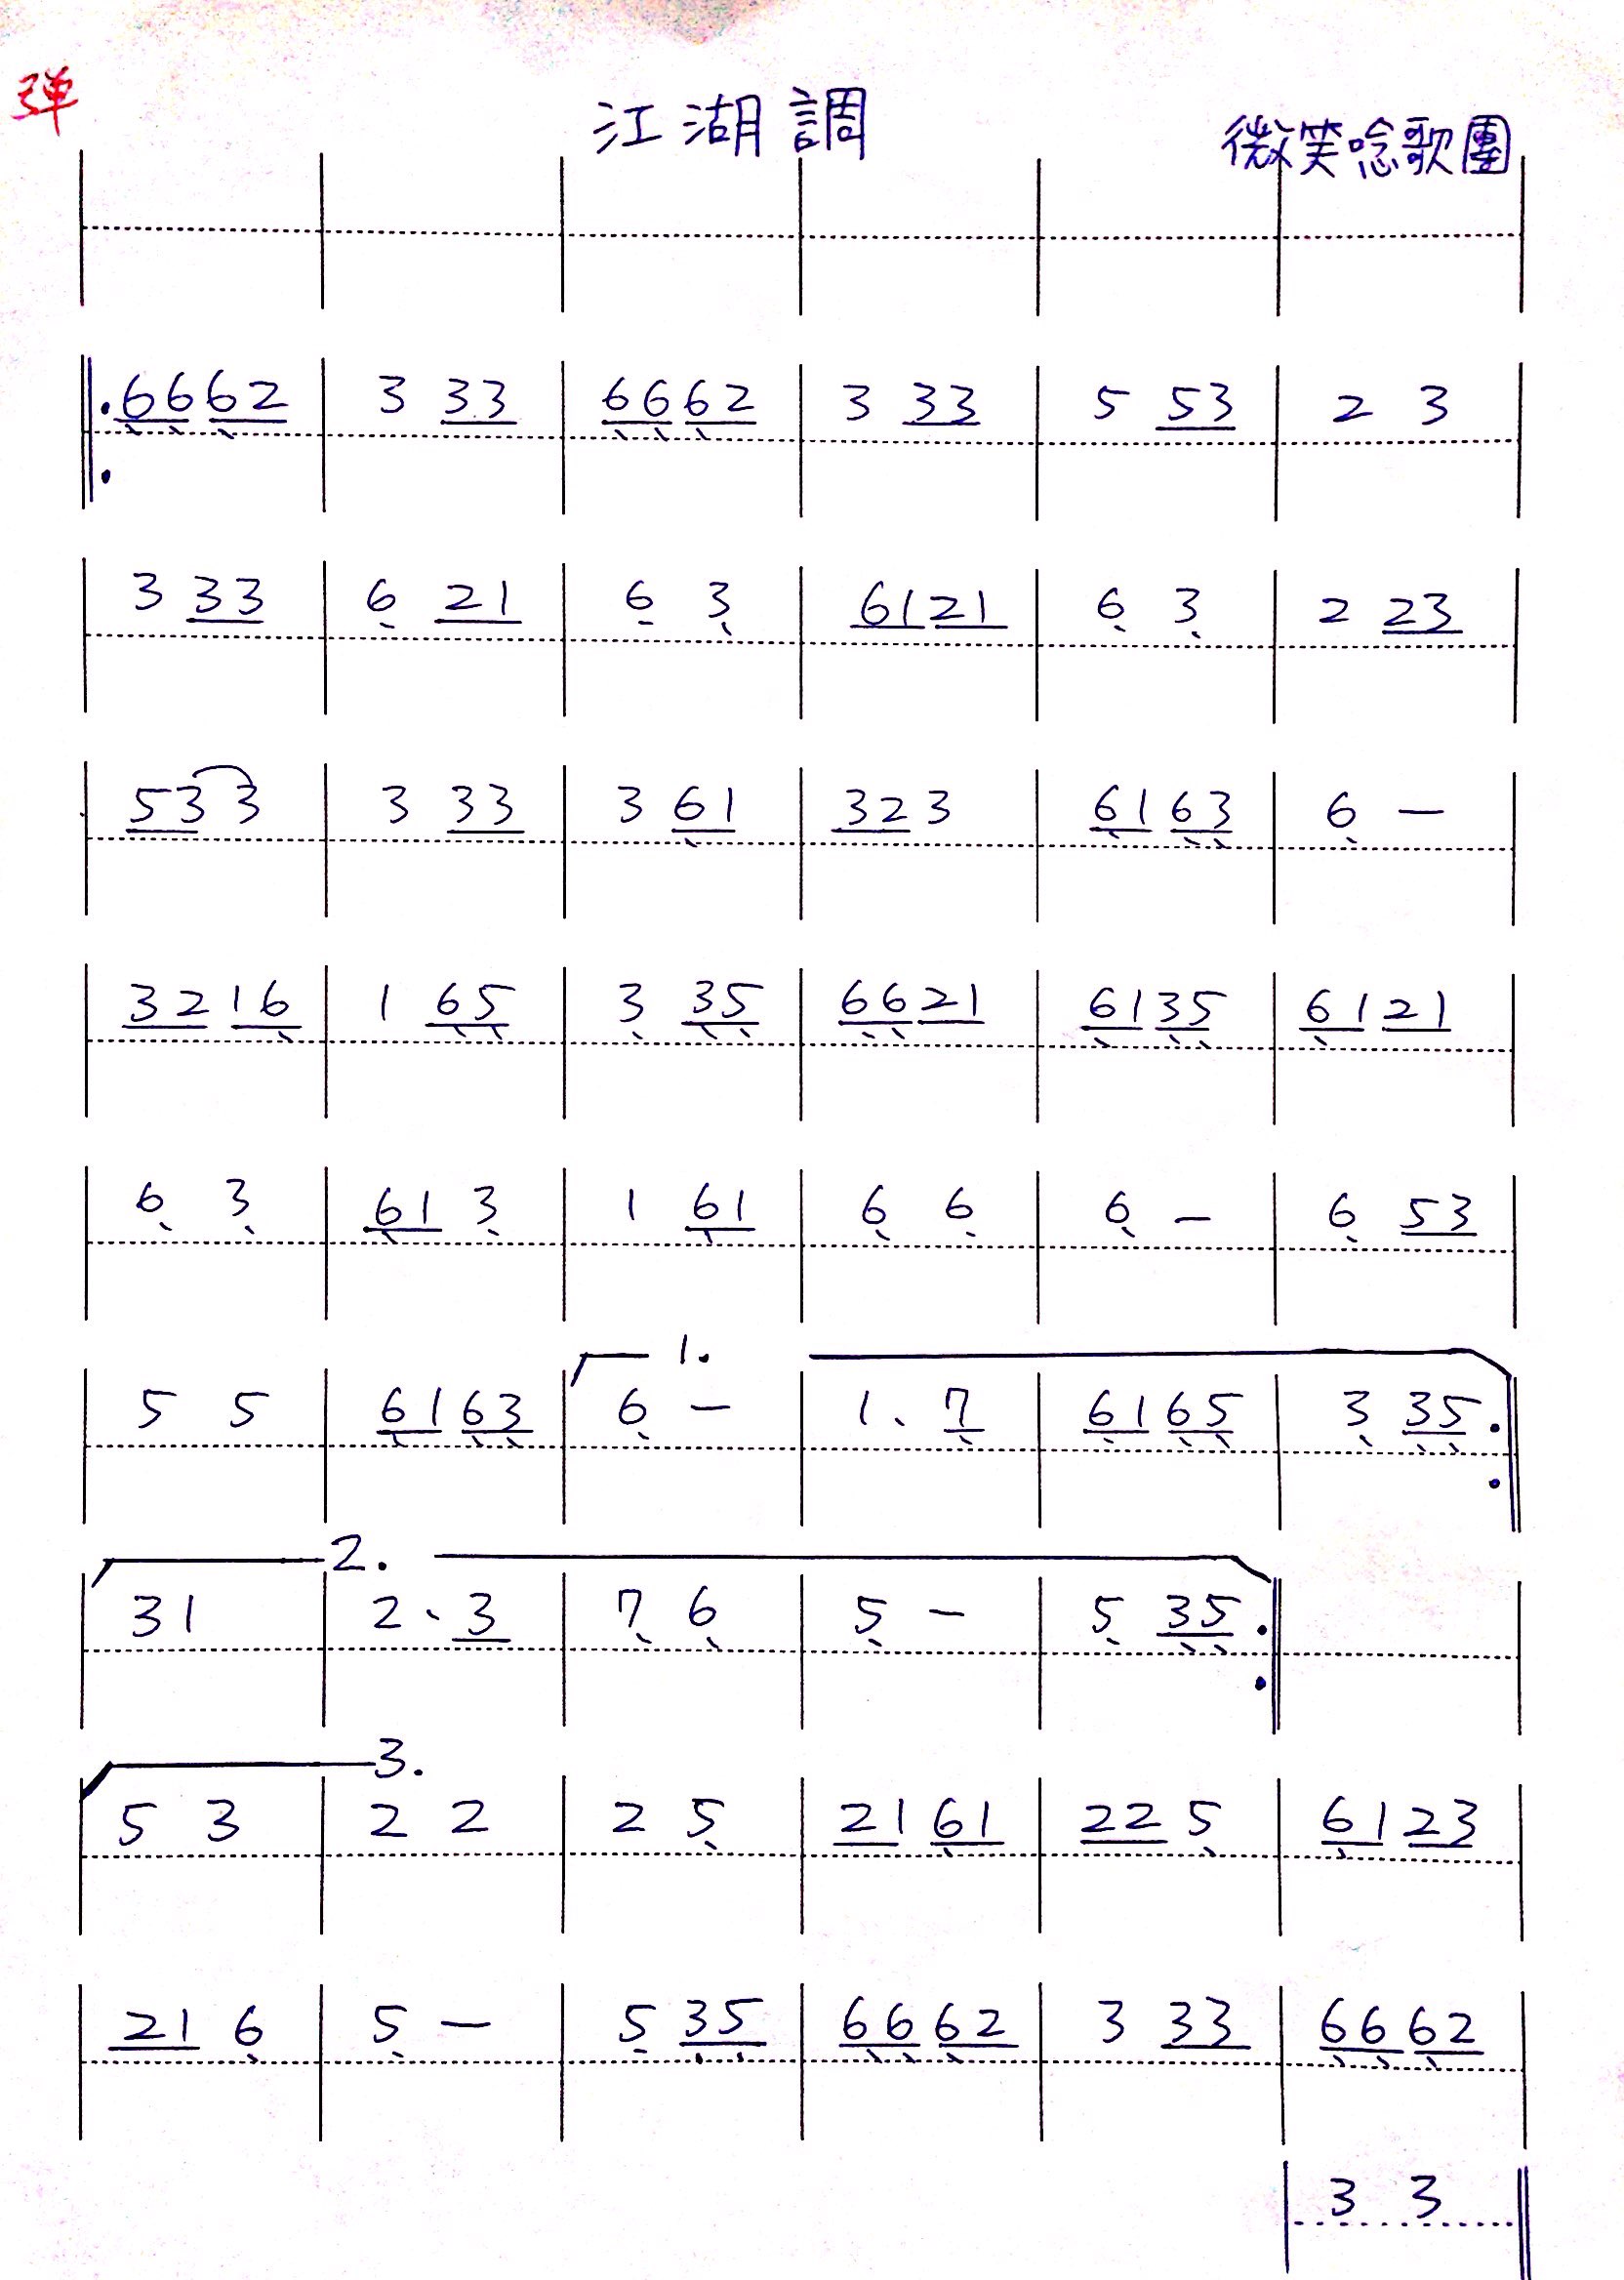 弹
江湖調
微笑唸歌團
6662 | 3 33 | 6662 | 3 33 | 5 53 | 2 3
3 33 | 6 21 | 6 3 | 6121 | 6 3 | 2 23
533 | 3 33 | 3 61 | 323 | 6163 | 6 —
3216 | 1 65 | 3 35 | 6621 | 6135 | 6121
6 3 | 61 3 | 1 61 | 6 6 | 6 — | 6 53
1.
5 5 | 6163 | 6 — | 1. 7 | 6165 | 3 35
2.
31 | 2. 3 | 7 6 | 5 — | 5 35
3.
5 3 | 2 2 | 2 5 | 2161 | 22 5 | 6123
21 6 | 5 — | 5 35 | 6662 | 3 33 | 6662
3 3